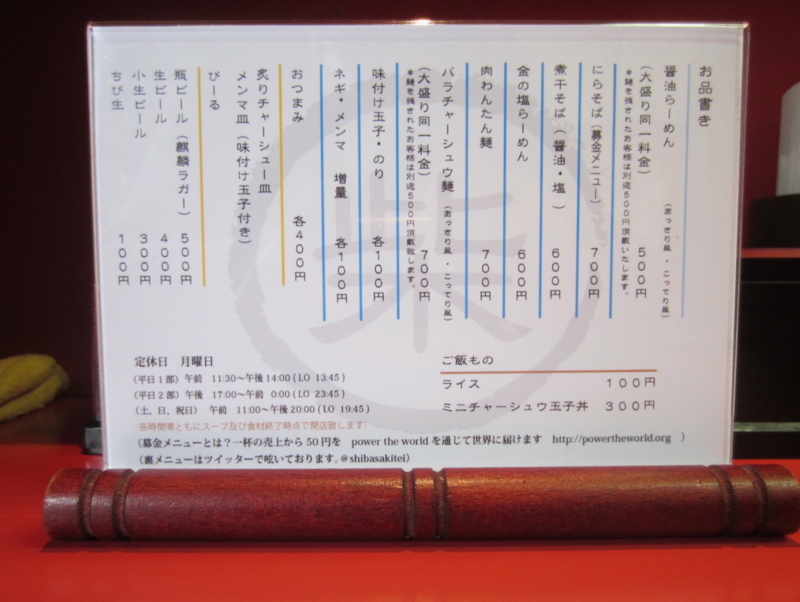 お品書き
醤油らーめん （あっさり風・こってり風）
（大盛り同一料金） 500円
＊麺を残されたお客様は別途500円頂戴いたします。
にらそば（募金メニュー） 700円
煮干そば（醤油・塩） 600円
金の塩らーめん 600円
肉わんたん麺 700円
バラチャーシュウ麺 （あっさり風・こってり風）
（大盛り同一料金） 700円
＊麺を残されたお客様は別途500円頂戴致します。
味付け玉子・のり 各100円
ネギ・メンマ 増量 各100円
おつまみ 各400円
炙りチャーシュー皿
メンマ皿（味付け玉子付き）
びーる
瓶ビール（麒麟ラガー） 500円
生ビール 400円
小生ビール 300円
ちび生 100円
柴
ご飯もの
ライス 100円
ミニチャーシュウ玉子丼 300円
定休日 月曜日
（平日1部）午前 11:30～午後14:00 ( LO 13:45 )
（平日2部）午後 17:00～午前 0:00 ( LO 23:45 )
（土、日、祝日） 午前 11:00～午後20:00 ( LO 19:45 )
（各時間帯ともにスープ及び食材終了時点で閉店致します）
（募金メニューとは？一杯の売上から50円を power the world を通じて世界に届けます http://powertheworld.org ）
（裏メニューはツイッターで呟いております。@shibasakitei）